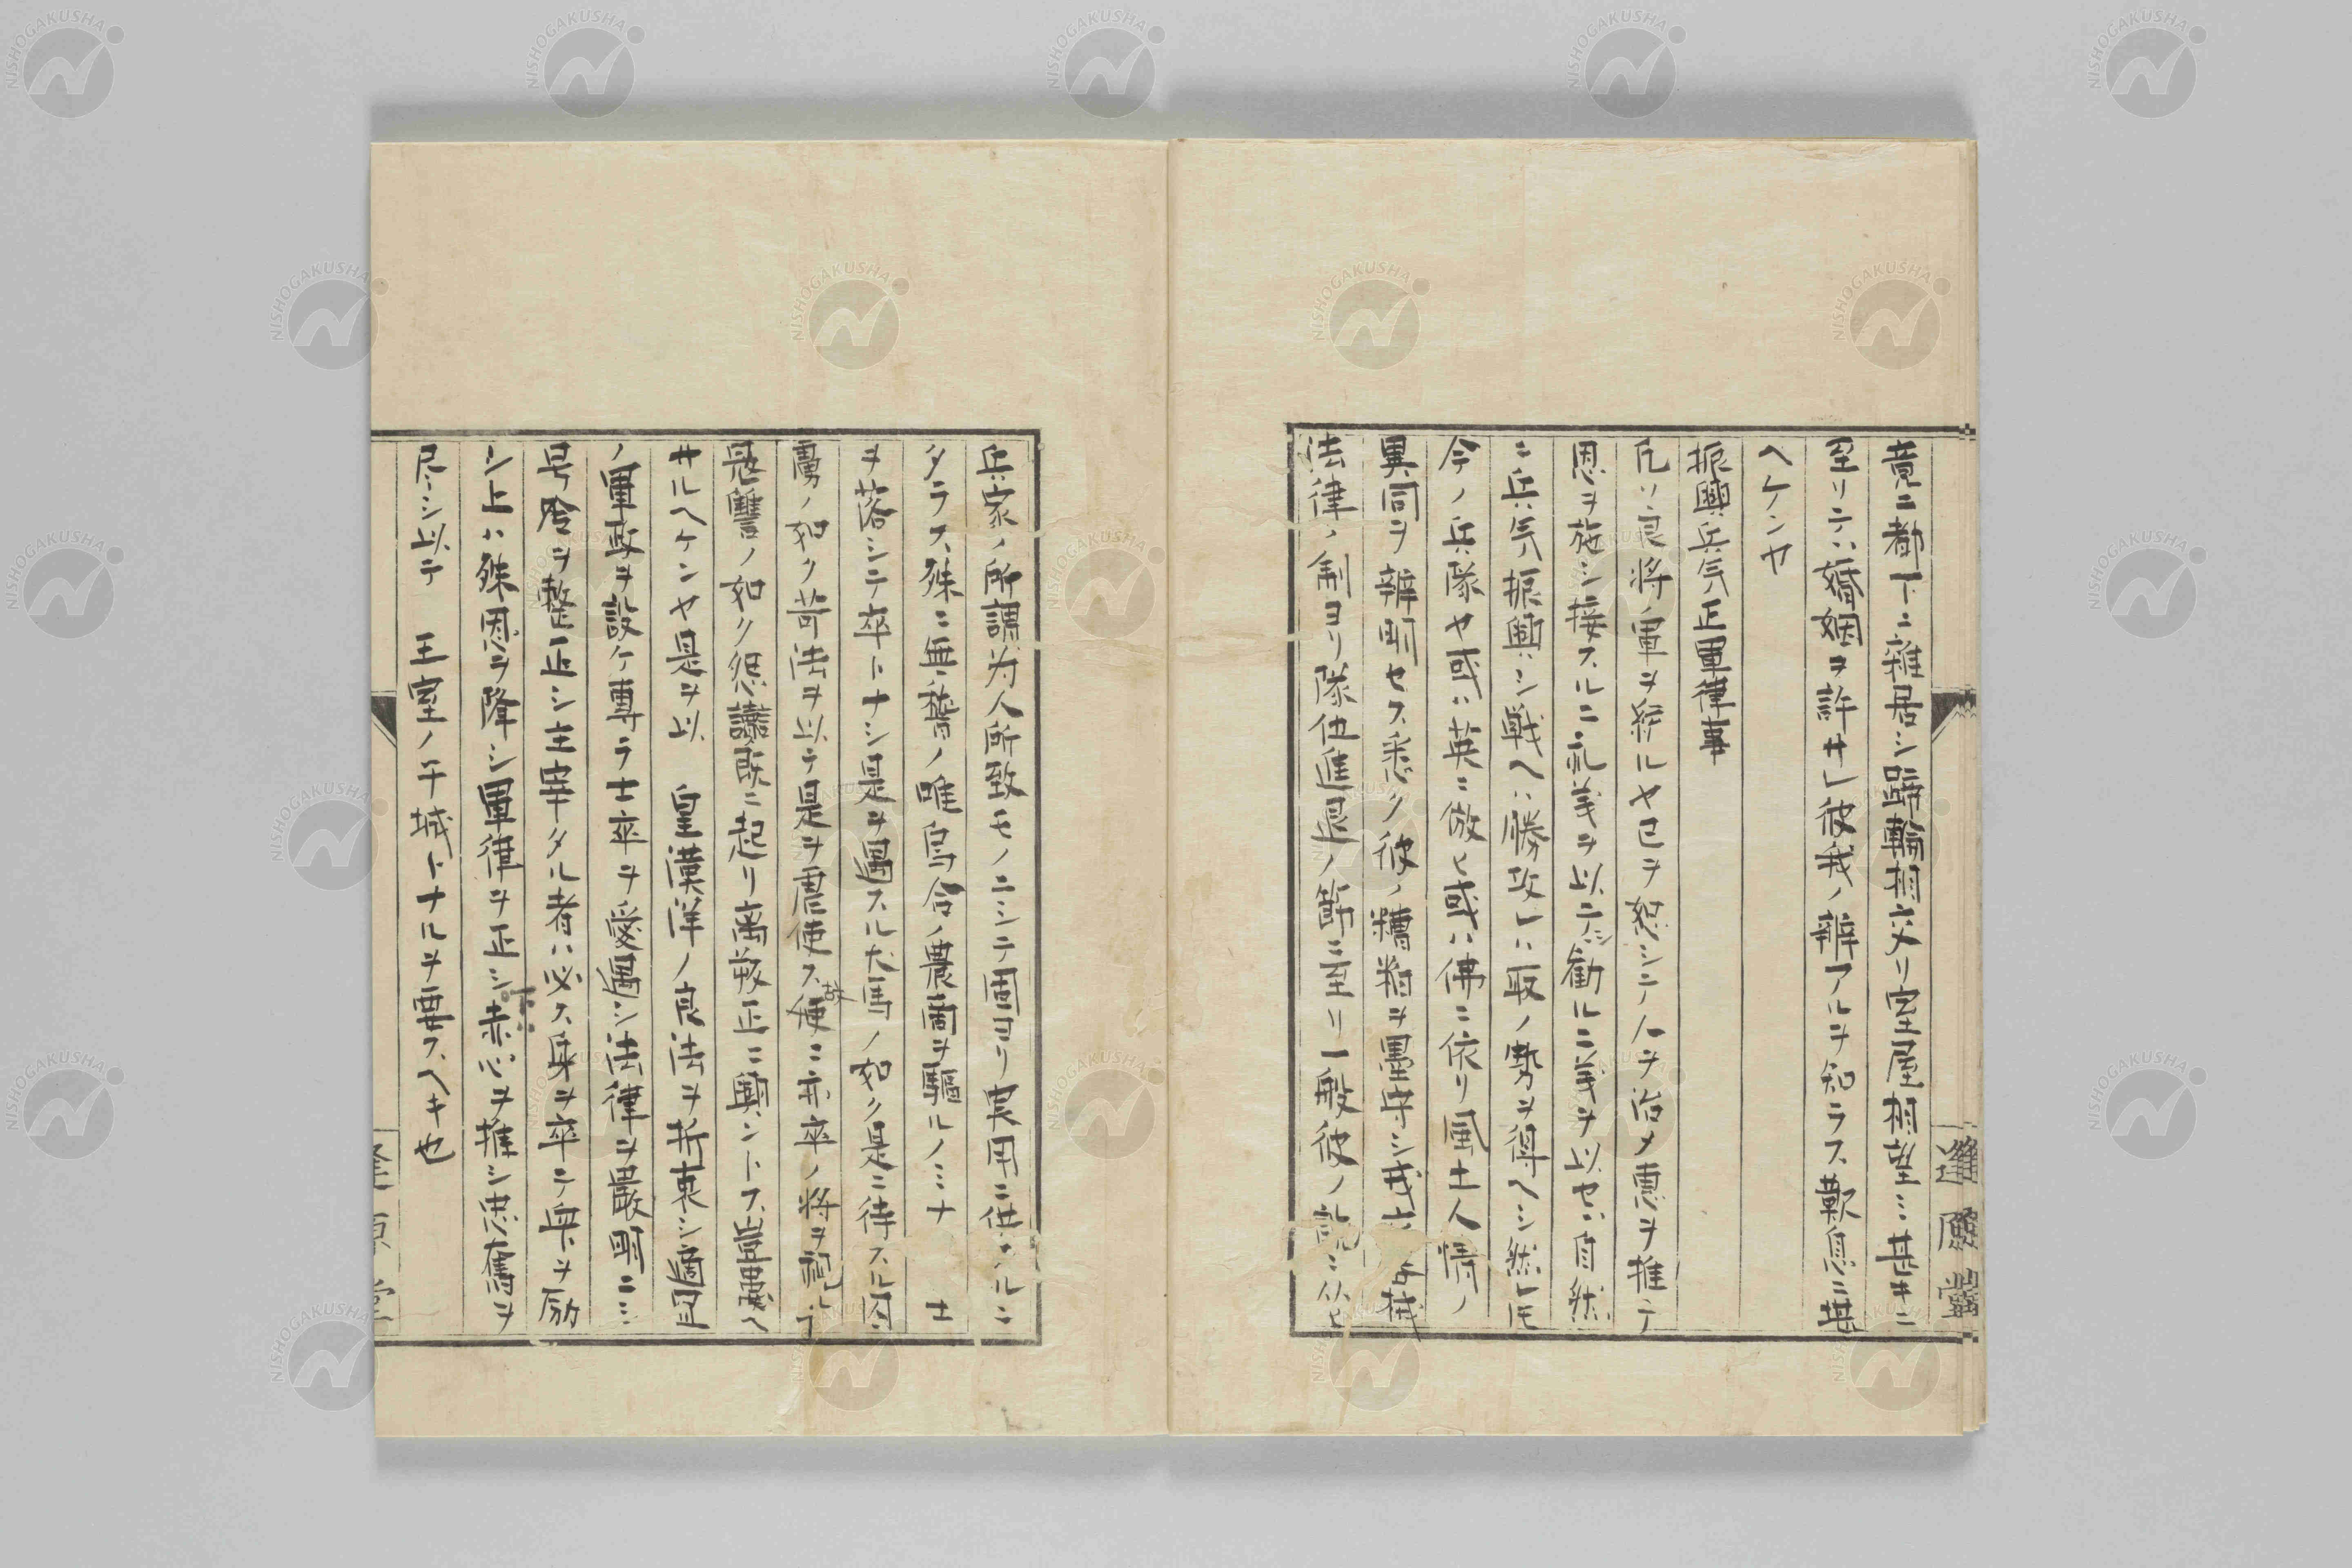 竟ニ都下ニ雜居シ蹄輪相交リ室屋相望ミ甚キニ
至リテハ婚姻ヲ許サレ彼我ノ辨アルヲ知ラス歎息ニ堪
ヘケンヤ
振興兵気正軍律事
凡ソ良将ノ軍ヲ統ルヤ己ヲ恕シテ人ヲ治メ惠ヲ推テ
恩ヲ施シ接スルニ礼義ヲ以テシ勸ルニ義ヲ以セハ自然
ニ兵気振興シ戦ヘハ勝攻レハ取ノ勢ヲ得ヘシ然レトモ
今ノ兵隊ヤ或ハ英ニ倣ヒ或ハ佛ニ依リ風土人情ノ
異同ヲ辨明セス悉ク彼ノ糟粕ヲ墨守シ我 械
法律ノ制ヨリ隊伍進退ノ節ニ至リ一般彼ノ
兵家ノ所謂為人所致モノニシテ固ヨリ実用ニ供 ルニ
タラス殊ニ無聱ノ唯烏合ノ農商ヲ驅ルノミナ 士
ヲ落シテ卒トナシ是ヲ遇スル犬馬ノ如ク是ニ待スル囚
虜ノ如ク苛法ヲ以テ是ヲ虐使ス故ニ亦卒ノ将ヲ視ル
冦讐ノ如ク怨讟既ニ起リ离叛正ニ興ントス豈畏ヘ
サルヘケンヤ是ヲ以 皇漢洋ノ良法ヲ折衷シ適冝
ノ軍政ヲ設ケ専ラ士卒ヲ愛遇シ法律ヲ嚴明ニシ
号令ヲ整正シ主宰タル者ハ必ス身ヲ卒テ衆ヲ励
シ上ハ殊恩ヲ降シ軍律ヲ正シ下ハ赤心ヲ推シ忠奮ヲ
尽シ以テ 王室ノ干城トナルヲ要スヘキ也